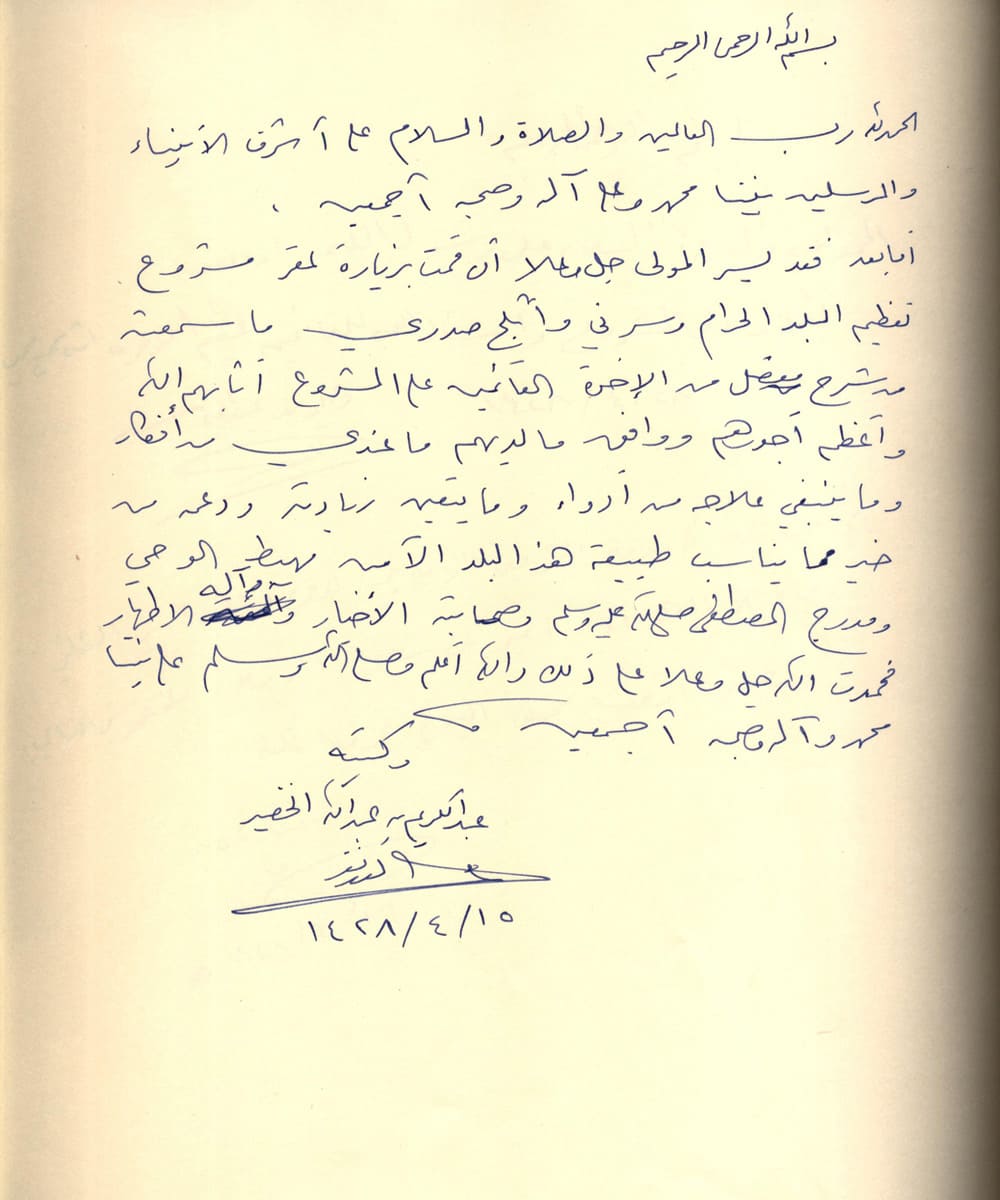 بسم الله الرحمن الرحيم
الحمد لله رب العالمين والصلاة والسلام على أشرف الأنبياء
والمرسلين نبينا محمد وعلى آله وصحبه أجمعين .
أما بعد فقد يسر المولى جل وعلا أن قمت بزيارة لمقر مشروع
تعظيم البلد الحرام وسرني وأثلج صدري ما سمعته
من شرح مفصل من الإخوة القائمين على المشروع أثابهم الله
وأعظم أجورهم ووافق ما لديهم ما عندي من أفكار
وما ينبغي علاجه من أدواء وما يتعين زيادته ودعمه من
خير مما يناسب طبيعة هذا البلد الأمين مهبط الوحي
ومدرج المصطفى صلى الله عليه وسلم وصحابته الأخيار وآله الاطهار
فحمدت الله جل وعلا على ذلك والله أعلم وصلى الله وسلم على نبينا
محمد وآله وصحبه أجمعين
وكتبه
عبدالكريم بن عبدالله الخضير
١٤٢٨/٤/١٥